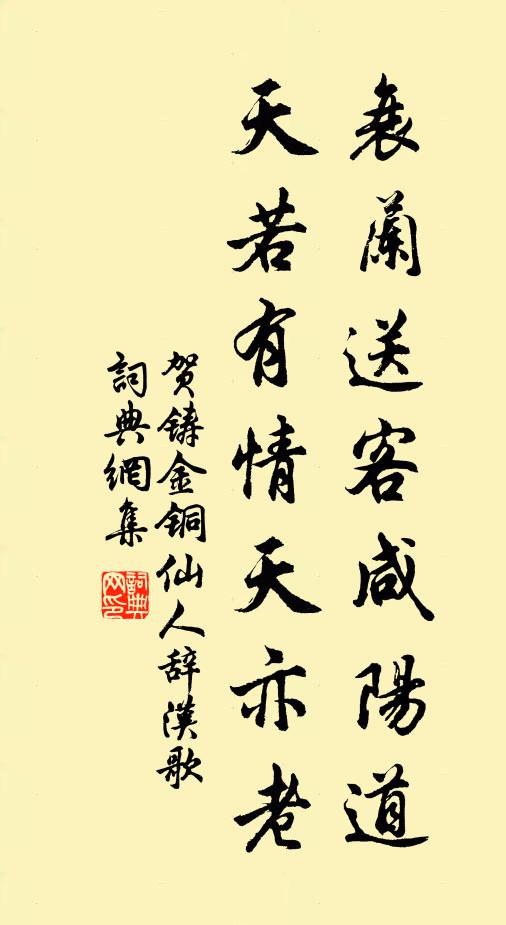 衰蘭送客咸陽道
天若有情天亦老
贺铸金铜仙人辞漢歌
詞典網集
詞典网印